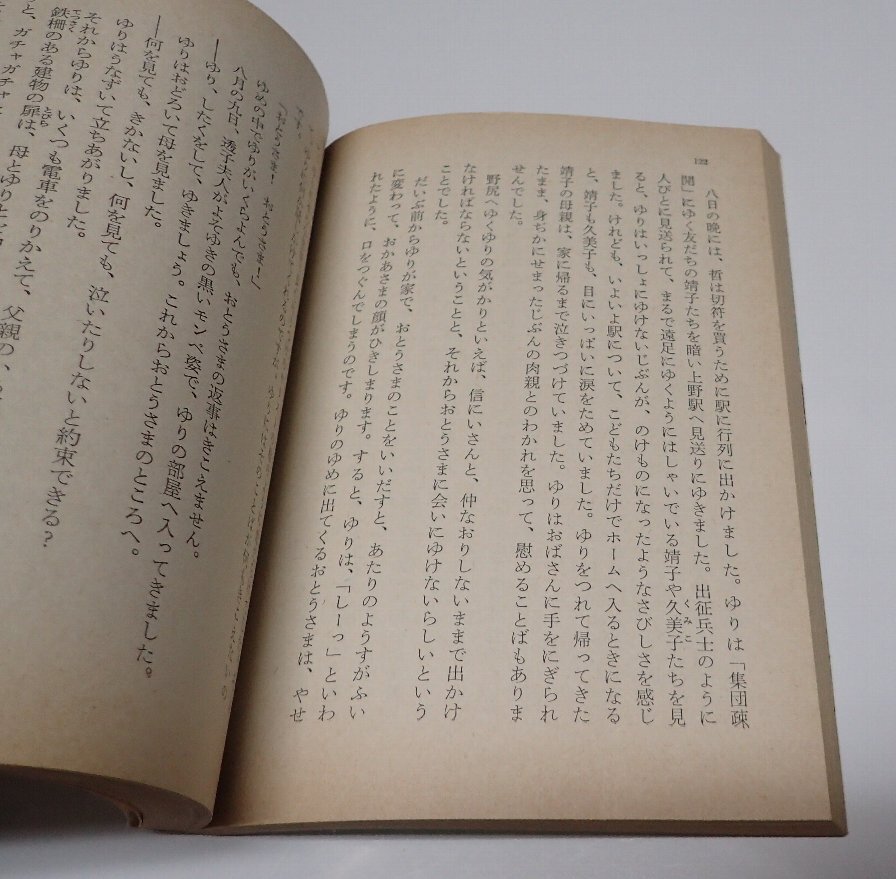 122
八日の晩には、哲は切符を買うために駅に行列に出かけました。ゆりは「集団疎
開」にゆく友だちの靖子たちを暗い上野駅へ見送りにゆきました。出征兵士のように
人びとに見送られて、まるで遠足にゆくようにはしゃいでいる靖子や久美子たちを見
くみこ
ると、ゆりはいっしょにゆけないじぶんが、のけものになったようなさびしさを感じ
ました。けれども、いよいよ駅について、こどもたちだけでホームへ入るときになる
と、靖子も久美子も、目にいっぱいに涙をためていました。ゆりをつれて帰ってきた
靖子の母親は、家に帰るまで泣きつづけていました。ゆりはおばさんに手をにぎられ
たまま、身ぢかにせまったじぶんの肉親とのわかれを思って、慰めることばもありま
せんでした。
野尻へゆくゆりの気がかりといえば、信にいさんと、仲なおりしないままで出かけ
なければならないということと、それからおとうさまに会いにゆけないらしいという
ことでした。
だいぶ前からゆりが家で、おとうさまのことをいいだすと、あたりのようすがふい
に変わって、おかあさまの顔がひきしまります。すると、ゆりは、「しーっ」といわ
れたように、口をつぐんでしまうのです。ゆりのゆめに出てくるおとうさまは、やせ
〈おとうさま! おとうさま!〉
ゆめの中でゆりがいくらよんでも、おとうさまの返事はきこえません。
八月の九日、透子夫人がよそゆきの黒いモンペ姿で、ゆりの部屋へ入ってきました。
――ゆり、したくをして、ゆきましょう。これからおとうさまのところへ。
ゆりはおどろいて母を見ました。
――何を見ても、きかないし、何を見ても、泣いたりしないと約束できる?
ゆりはうなずいて立ちあがりました。
それからゆりは、いくつも電車をのりかえて、父親のい
鉄柵のある建物の扉は、母とゆりとを
てっさく
とびら
と、ガチャガチャと